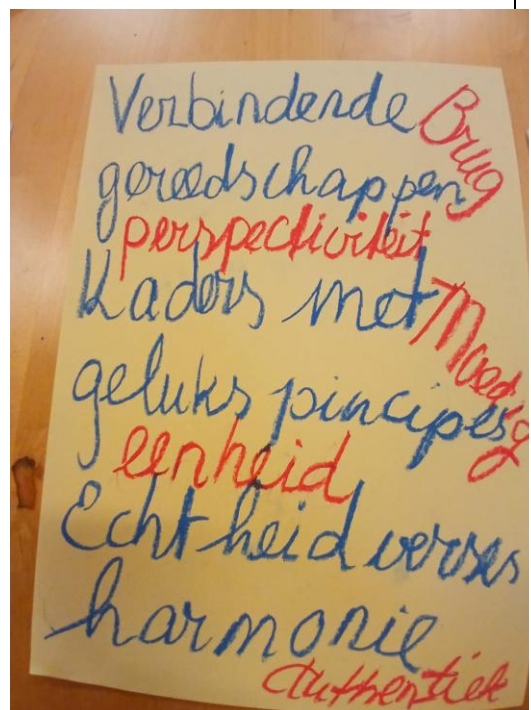 Verbindende Brug
gereedschappen
perspectiviteit
Kaders met Moedig
geluks pincipes
eenheid
Echtheid verses
harmonie
Authentiek